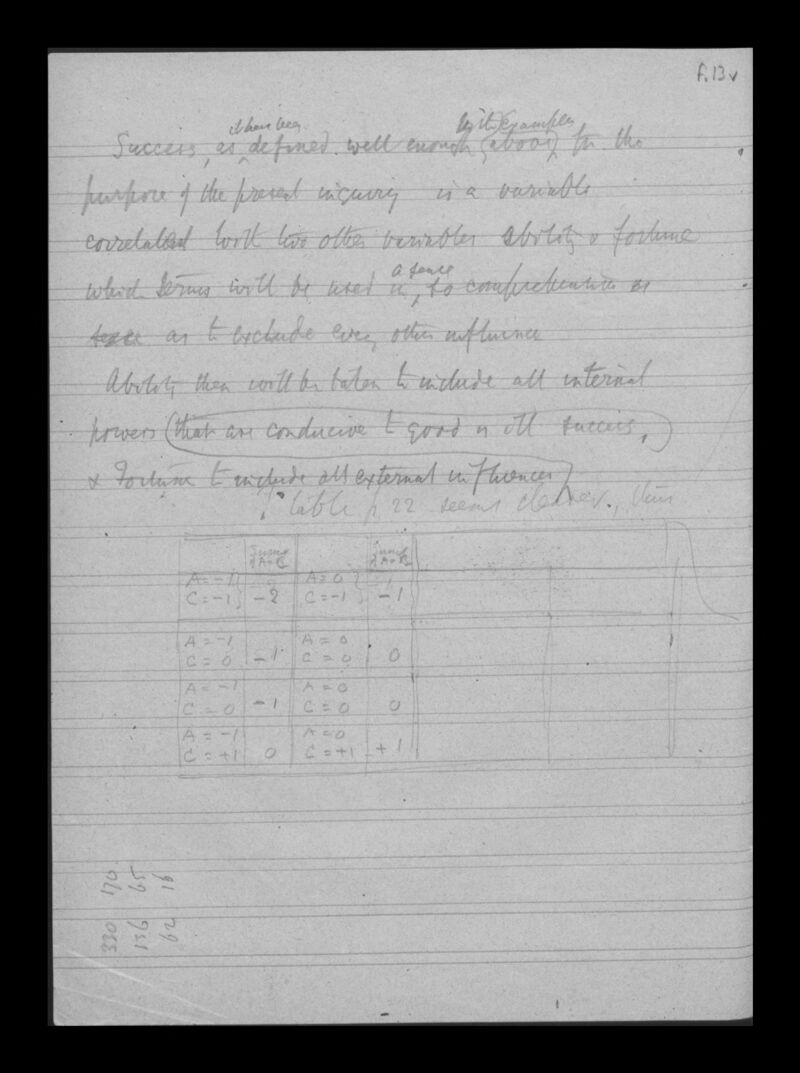 f.13v
it have been
with examples
Success, as defined well enough (above) for the
purpose of the present inquiry is a variable
correlated with two other variables ability & fortune
a sense
which terms will be used in, so comprehensive as
as to exclude every other influence
Ability then will be taken to include all internal
powers (that are conducive to good or ill success,)
& Fortune to include all external influences
table p 22 seems clearer, thus
Sums of A+C Sums of A+C
A=-1 } A=0 }
C=-1 } -2 C=-1 } -1
A=-1 A=0
C=0 -1 C=0 0
A=-1 A=0
C=0 -1 C=0 0
A=-1 A=0
C=+1 0 C=+1 +1
330 170
136 65
62 16